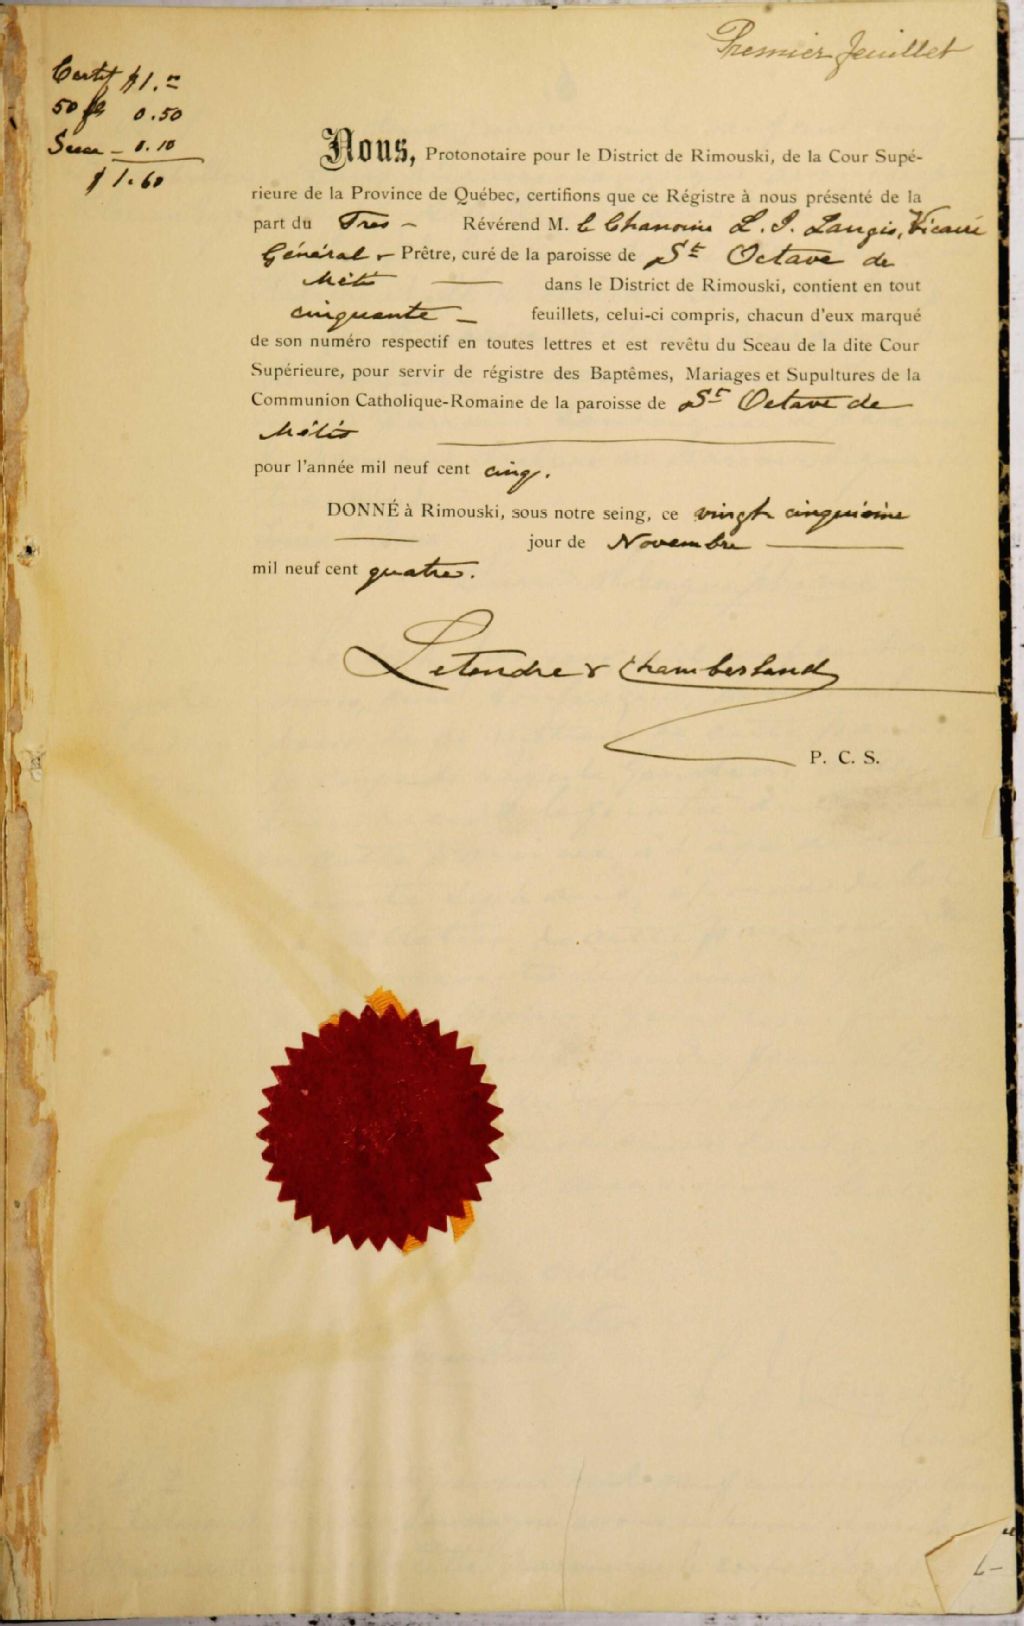 Premier feuillet
Certif $1.00
50 fts 0.50
Sceau - 0.10
$1.60
Nous, Protonotaire pour le District de Rimouski, de la Cour Supé-
rieure de la Province de Québec, certifions que ce Régistre à nous présenté de la
part du Très - Révérend M. le Chanoine L. J. Langis, Vicaire
Général - Prêtre, curé de la paroisse de St Octave de
Métis dans le District de Rimouski, contient en tout
cinquante - feuillets, celui-ci compris, chacun d'eux marqué
de son numéro respectif en toutes lettres et est revêtu du Sceau de la dite Cour
Supérieure, pour servir de régistre des Baptêmes, Mariages et Supultures de la
Communion Catholique-Romaine de la paroisse de St Octave de
Métis
pour l'année mil neuf cent cinq.
DONNÉ à Rimouski, sous notre seing, ce vingt cinquième
jour de Novembre
mil neuf cent quatre.
Letendre & Chamberland
P. C. S.